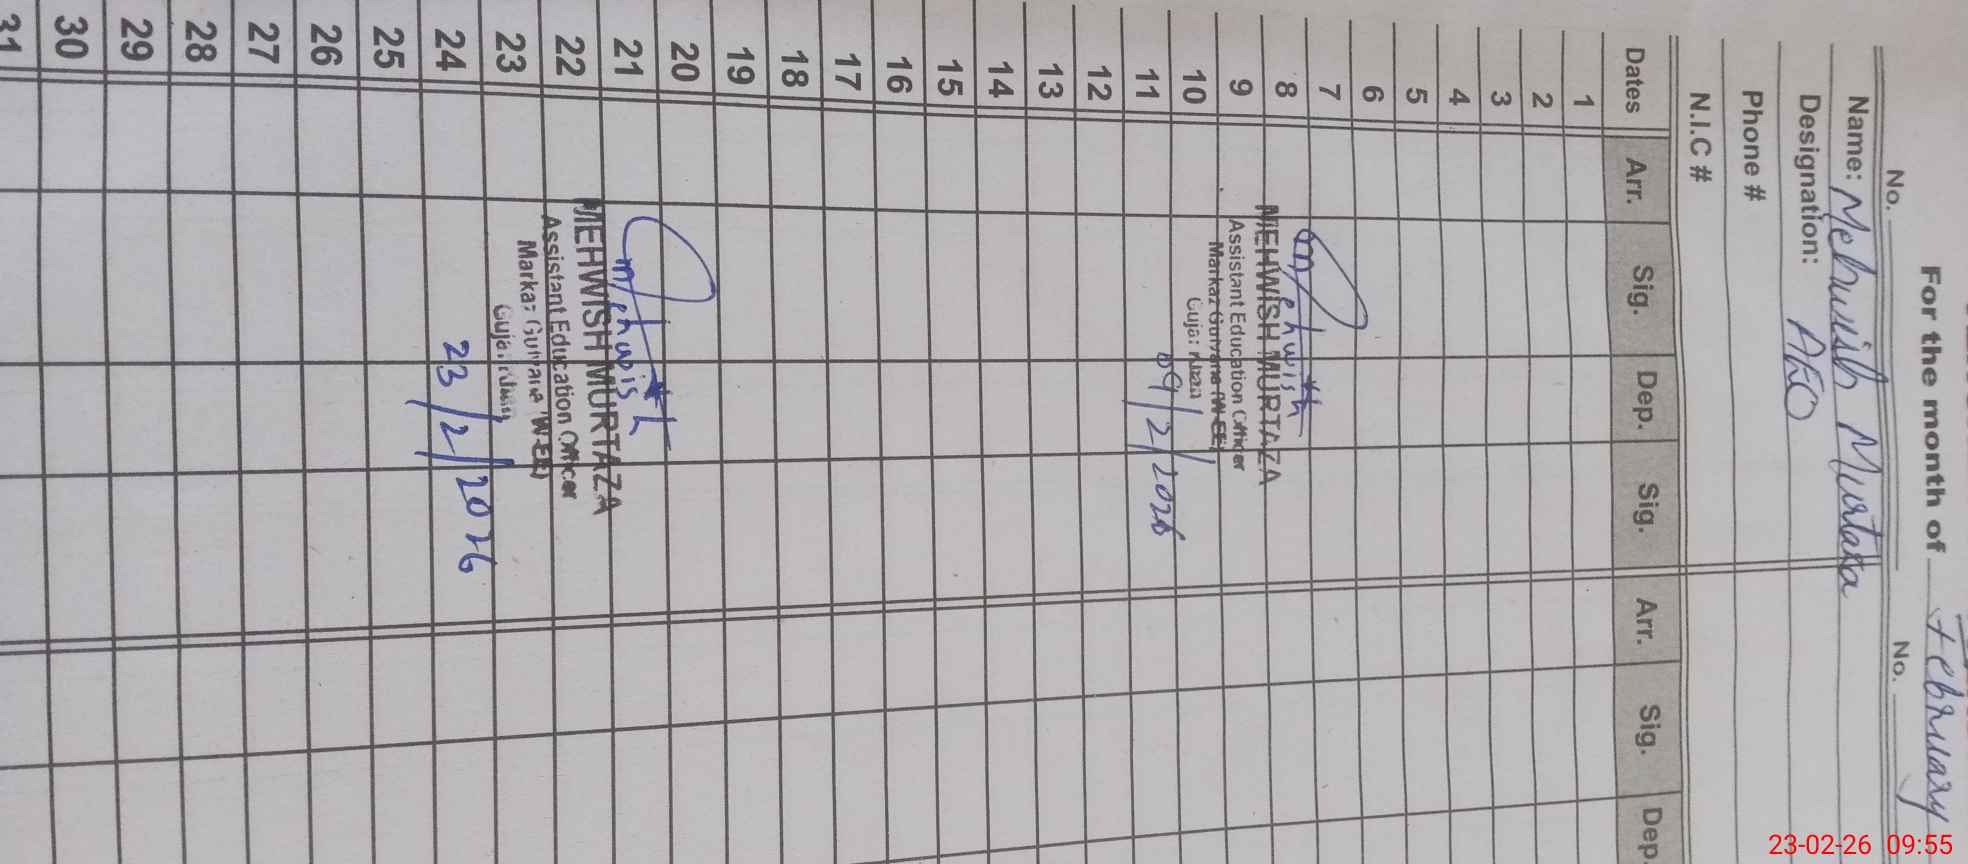 For the month of February
No. No.
Name: Mehwish Murtaza
Designation: AEO
Phone #
N.I.C #
Dates Arr. Sig. Dep. Sig. Arr. Sig. Dep.
1
2
3
4
5
6
7
Mehwish
8
MEHWISH MURTAZA
9
Assistant Education Officer
Markaz
10
11
09/2/2026
12
13
14
15
16
17
18
19
20
21
Mehwish
MEHWISH MURTAZA
22
Assistant Education Officer
23
Markaz
24
23/2/2026
25
26
27
28
29
30
31
23-02-26 09:55